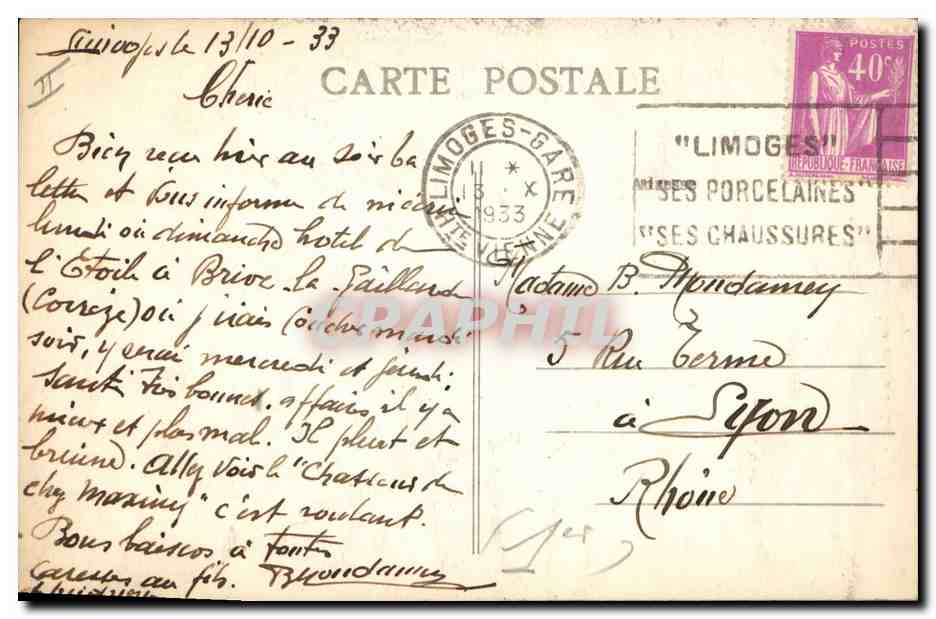 Limoges le 13/10 - 33
II
CARTE POSTALE
Cherie
POSTES
40c
RÉPUBLIQUE-FRANÇAISE
LIMOGES-GARE
*
13 X
1933
HTE VIENNE
"LIMOGES"
"SES PORCELAINES"
"SES CHAUSSURES"
Bien recu hier au soir ta
lettre et vous informe de
lundi ou dimanche hotel de
l'Etoile à Brive la Gaillarde
(Corrèze) où j'irais mardi
soir, y serai mercredi et jeudi.
Santé très bonne. affaires, il y a
mieux et plus mal. Il pleut et
bruine. Allez voir le "Chasseur de
chez Maxim's" c'est roulant.
Bons baisers à toutes
Caresses au fils. BMondamey
Madame B. Mondamey
5 Rue Terme
à Lyon
Rhône
CPARPHIL